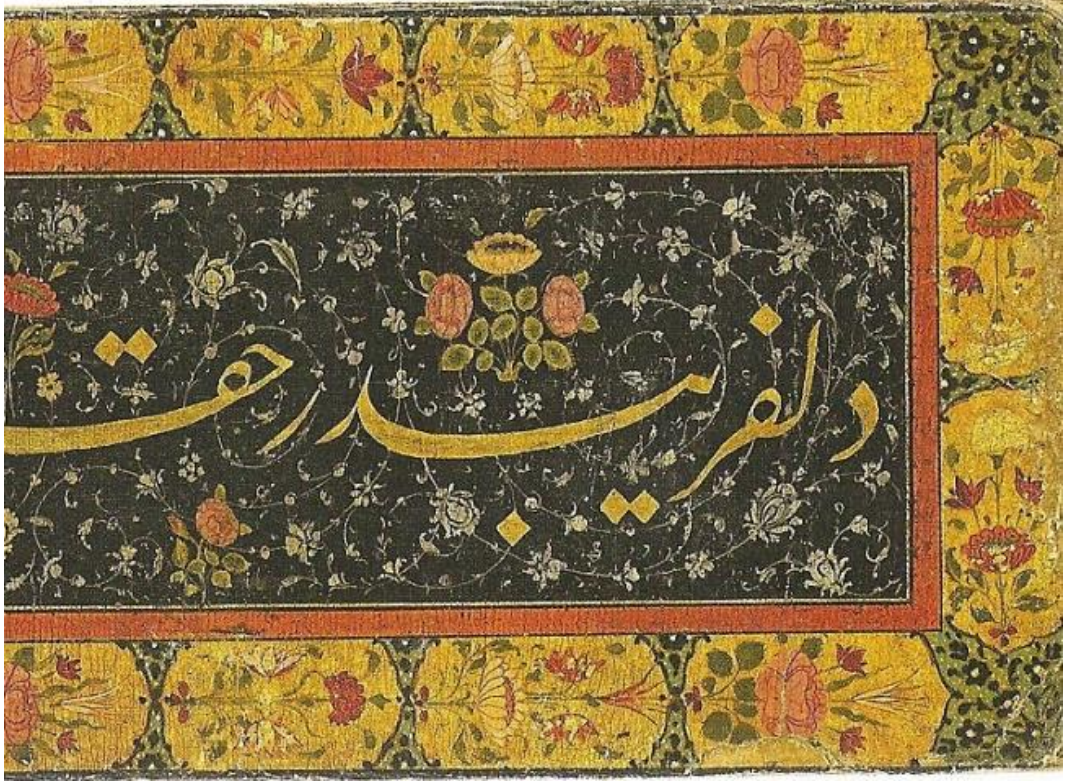 دلفریب در حق